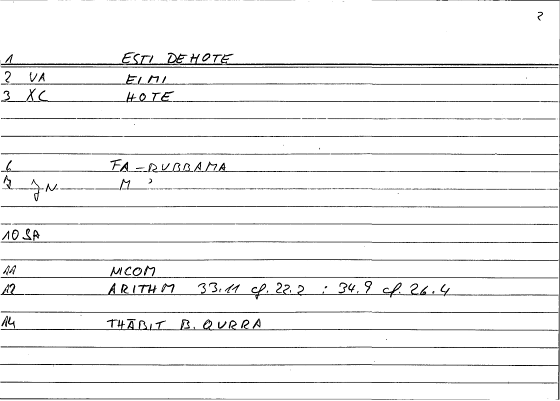 2
1 ESTI DE HOTE
2 VA EIMI
3 XC HOTE
6 FA-RUBBAMA
7 JN M'
10 SA
11 MCOM
12 ARITHM 33.11 cf. 22.2 : 34.9 cf. 26.4
14 THĀBIT B. QURRA